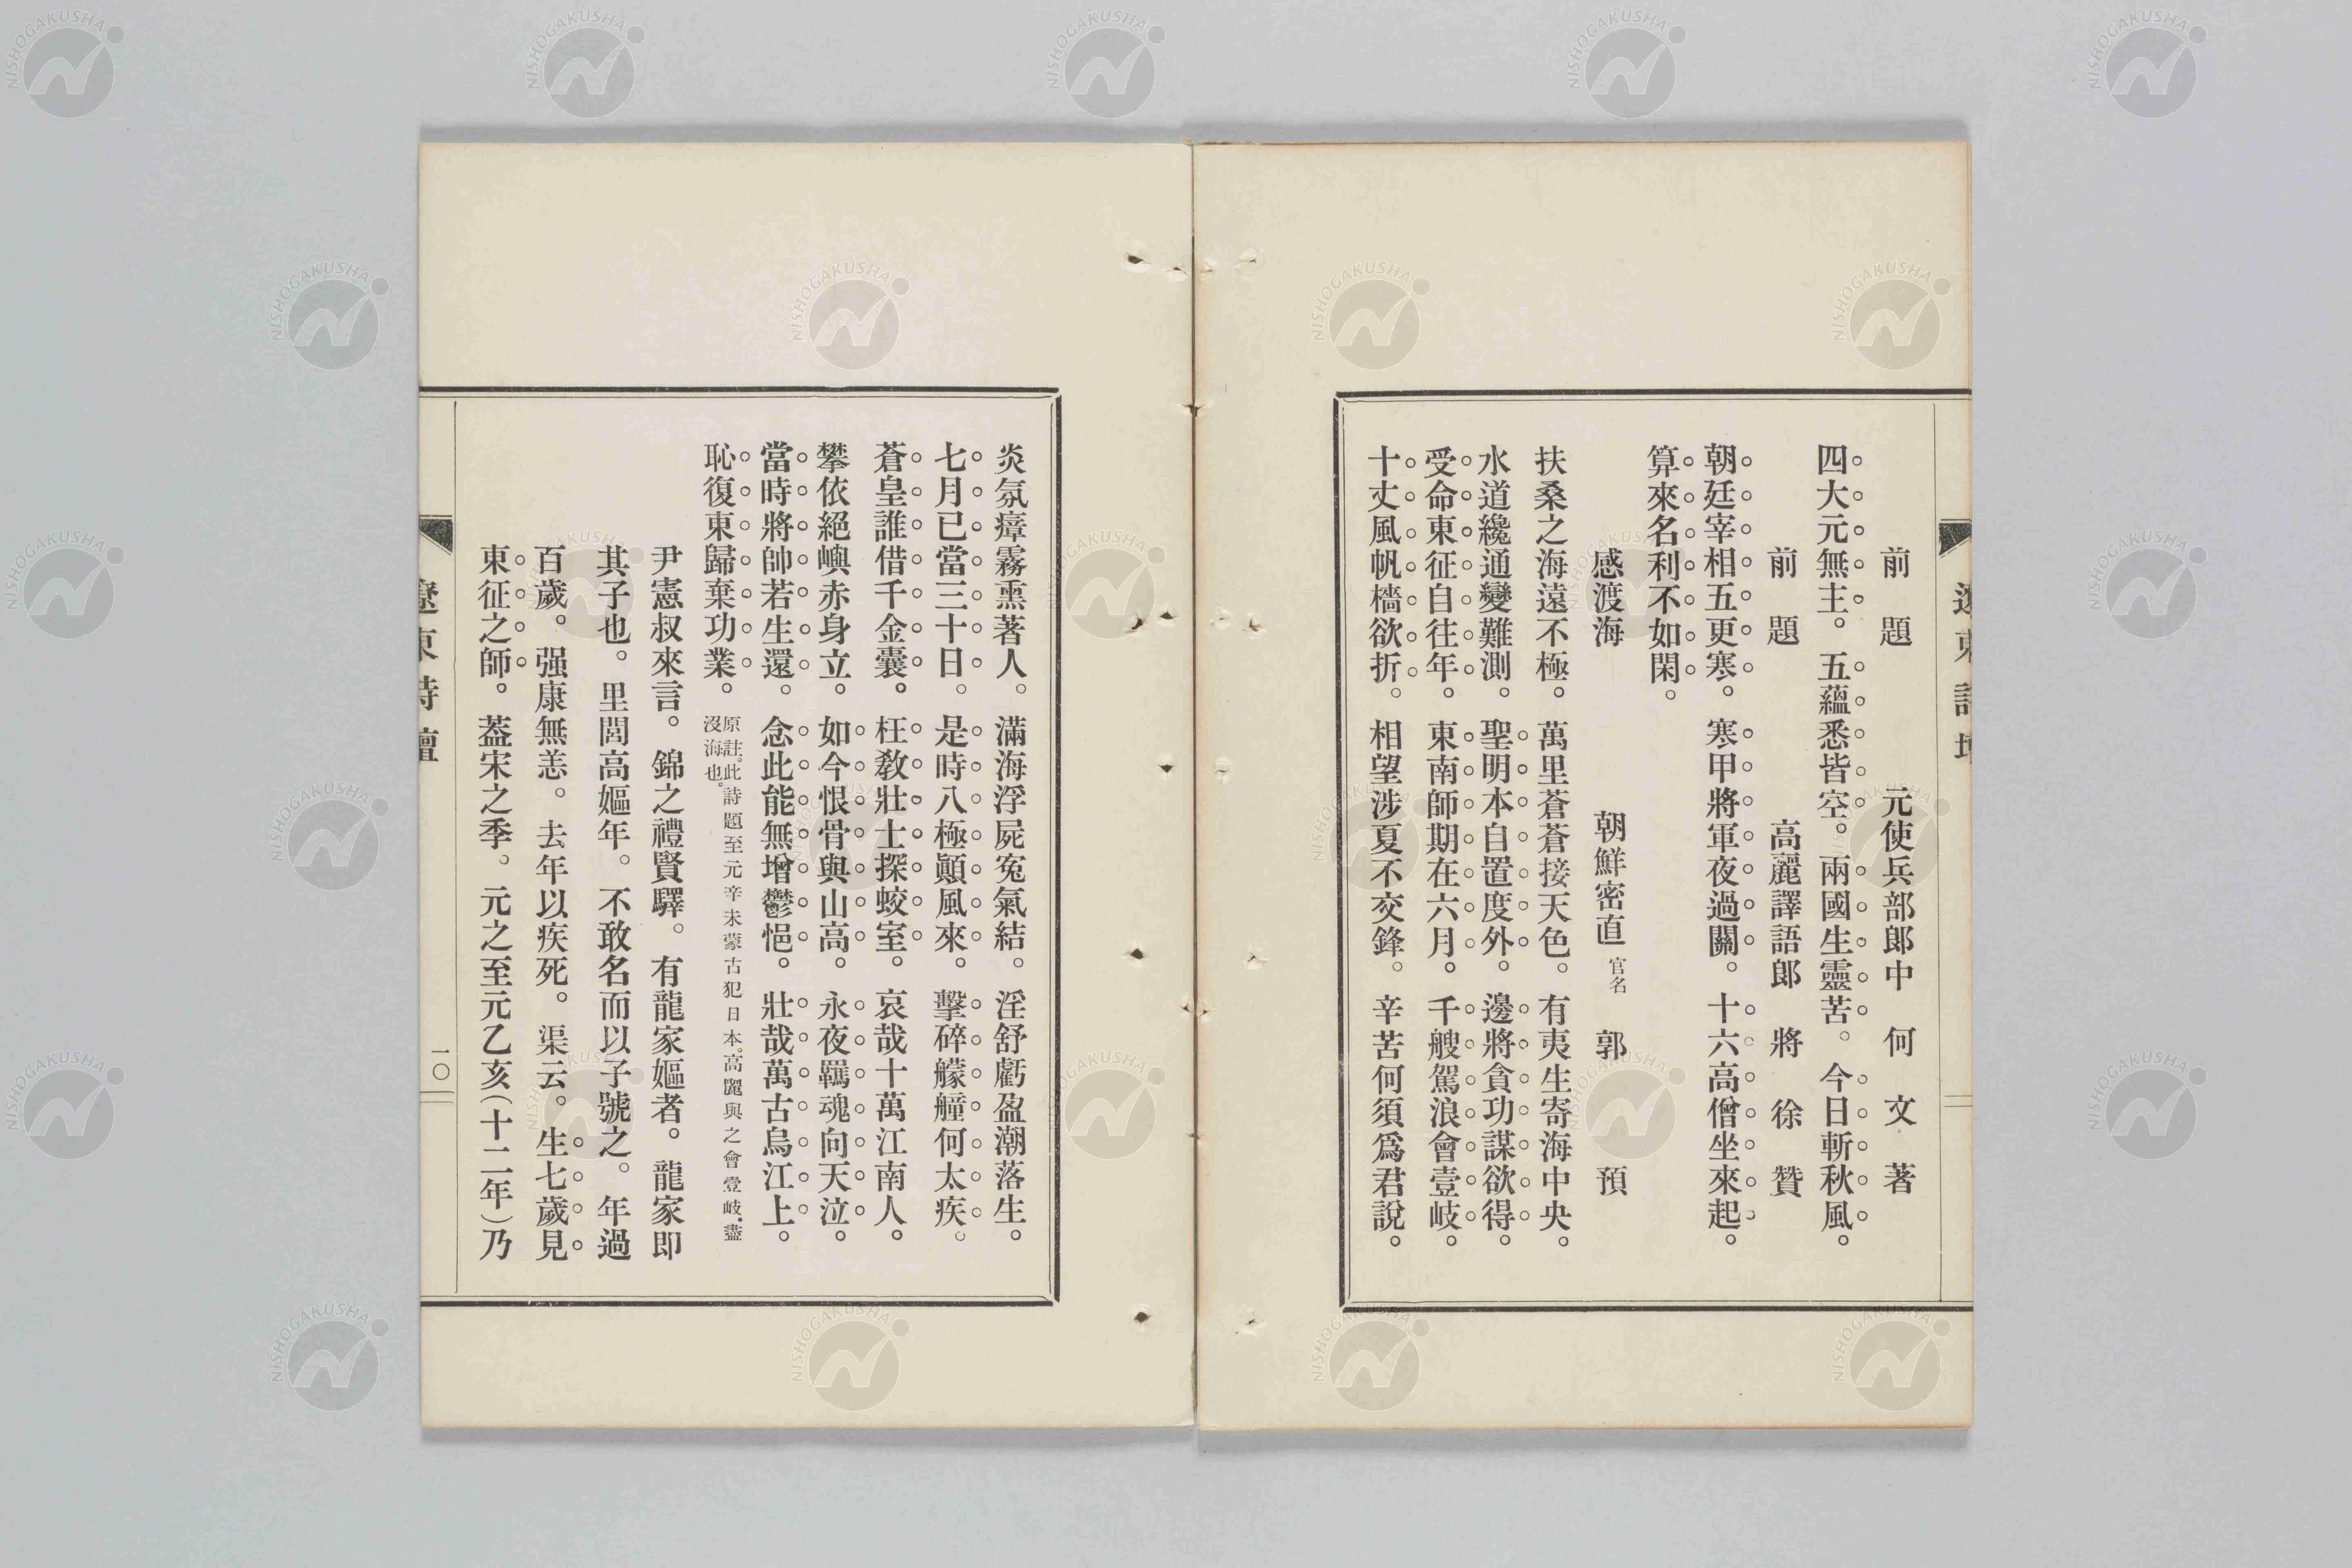 遼東詩壇
前題 元使兵部郎中 何文著
四大元無主。五蘊悉皆空。兩國生靈苦。今日斬秋風。
前題 高麗譯語郎 將徐贊
朝廷宰相五更寒。寒甲將軍夜過關。十六高僧坐來起。
算來名利不如閑。
感渡海 朝鮮密直 官名 郭預
扶桑之海遠不極。萬里蒼蒼接天色。有夷生寄海中央。
水道纔通變難測。聖明本自置度外。邊將貪功謀欲得。
受命東征自往年。東南師期在六月。千艘駕浪會壹岐。
十丈風帆檣欲折。相望涉夏不交鋒。辛苦何須爲君說。
炎氛瘴霧熏著人。滿海浮屍冤氣結。淫舒虧盈潮落生。
七月已當三十日。是時八極顚風來。擊碎艨艟何太疾。
蒼皇誰借千金囊。枉敎壯士探蛟室。哀哉十萬江南人。
攀依絕嶼赤身立。如今恨骨與山高。永夜羈魂向天泣。
當時將帥若生還。念此能無增鬱悒。壯哉萬古烏江上。
恥復東歸棄功業。原註。此詩題至元辛未蒙古犯日本。高麗與之會壹岐。盡
沒海也。
尹憲叔來言。錦之禮賢驛。有龍家嫗者。龍家即
其子也。里閭高嫗年。不敢名而以子號之。年過
百歲。强康無恙。去年以疾死。渠云。生七歲見
東征之師。葢宋之季。元之至元乙亥(十二年)乃
遼東詩壇
一〇
NISHOGAKUSHA